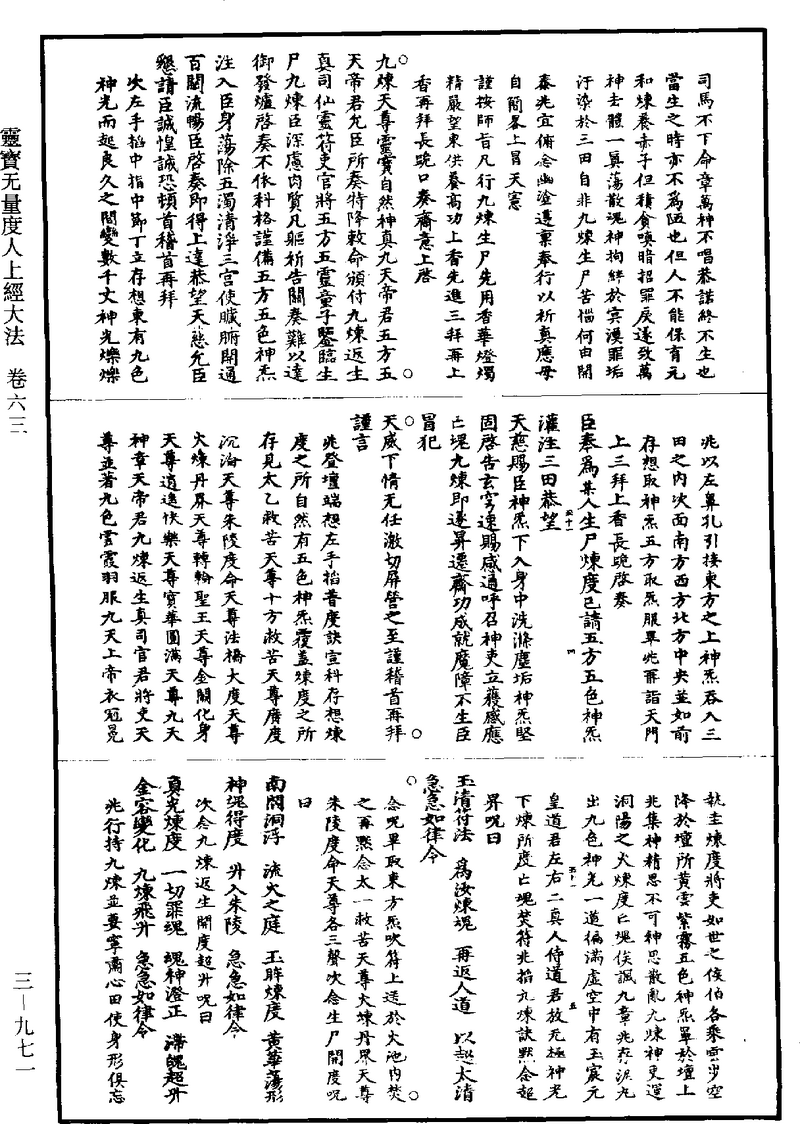 靈寶无量度人上經大法　卷六三
三—九七一
司馬不下命章萬神不唱恭諾終不生也
當生之時亦不為陋也但人不能保育元
和煉養赤子但積貪嗔暗招罪戾遂致萬
神去體一真蕩散魂神拘絆於冥漠罪垢
汙染於三田自非九煉生尸苦惱何由開
泰兆宜俯念幽塗遵稟奉行以祈真應毋
自簡畧上冒天憲
謹按師旨凡行九煉生尸先用香華燈燭
精嚴望東供養高功上香先進三拜再上
香再拜長跪口奏齋意上啓
九煉天尊靈寶自然神真九天帝君五方五
天帝君允臣所奏特降敕命頒付九煉返生
真司仙靈符吏官將五方五靈童子鑒臨生
尸九煉臣深慮肉質凡軀祈告關奏難以達
御發爐啓奏不依科格謹備五方五色神炁
注入臣身蕩除五濁清淨三宮使臟腑開通
百關流暢臣啓奏即得上達恭望天慈允臣
懇請臣誠惶誠恐頓首稽首再拜
次左手掐中指中節丁立存想東有九色
神光而起良久之間變數千丈神光爍爍
兆以左鼻孔引接東方之上神炁吞入三
田之內次面南方西方北方中央並如前
存想取神炁五方取炁服畢兆再詣天門
上三拜上香長跪啓奏
臣奉為某人生尸煉度已請五方五色神炁
灌注三田恭望
天慈賜臣神炁下入身中洗滌塵垢神炁堅
固啓告玄穹速賜感通呼召神吏立獲感應
亡魂九煉即遂昇遷齋功成就魔障不生臣
冒犯
天威下情无任激切屏營之至謹稽首再拜
謹言
兆登壇端想左手掐普度訣宣科存想煉
度之所自然有五色神炁覆蓋煉度之所
存見太乙救苦天尊十方救苦天尊廣度
沉淪天尊朱陵度命天尊法橋大度天尊
火煉丹界天尊轉輪聖王天尊金闕化身
天尊逍遙快樂天尊寶華圓滿天尊九天
神章天帝君九煉返生真司官君將吏天
尊並著九色雲霞羽服九天上帝衣冠冕
執圭煉度將吏如世之侯伯各乘雲步空
降於壇所黃雲紫霧五色神炁罩於壇上
兆集神精思不可神思散亂九煉神吏運
洞陽之火煉度亡魂俟諷九章兆存泥九
出九色神光一道徧滿虛空中有玉宸元
皇道君左右二真人侍道君放无極神光
下煉所度亡魂焚符兆掐九煉訣默念超
昇呪曰
玉清符法　為汝煉魂　再返人道　以超太清
急急如律令
念呪畢取東方炁吹符上送於火池內焚
之再默念太一救苦天尊火煉丹界天尊
朱陵度命天尊各三聲次念生尸開度呪
曰
南閣洞浮　流火之庭　玉眸煉度　黃華蕩形
神魂得度　升入朱陵　急急如律令
次念九煉返生開度超升呪曰
真光煉度　一切罪魂　魂神澄正　滯魄超升
金容變化　九煉飛升　急急如律令
兆行持九煉並要寧肅心田使身形俱忘